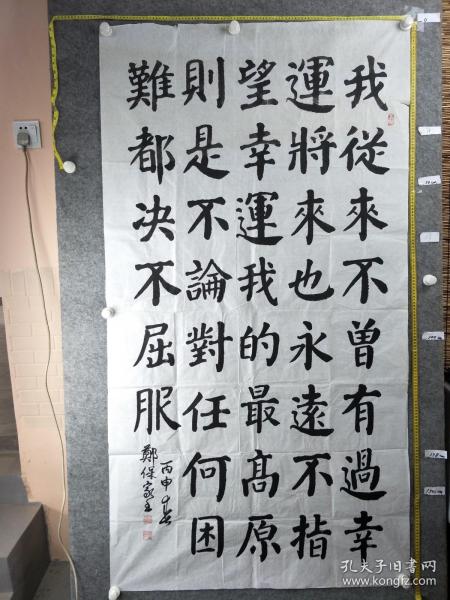 我從來不曾有過幸
運將來也永遠不指
望幸運我的最高原
則是不論對任何困
難都决不屈服
丙申
鄭保家
孔夫子旧书网
www.kongfz.com